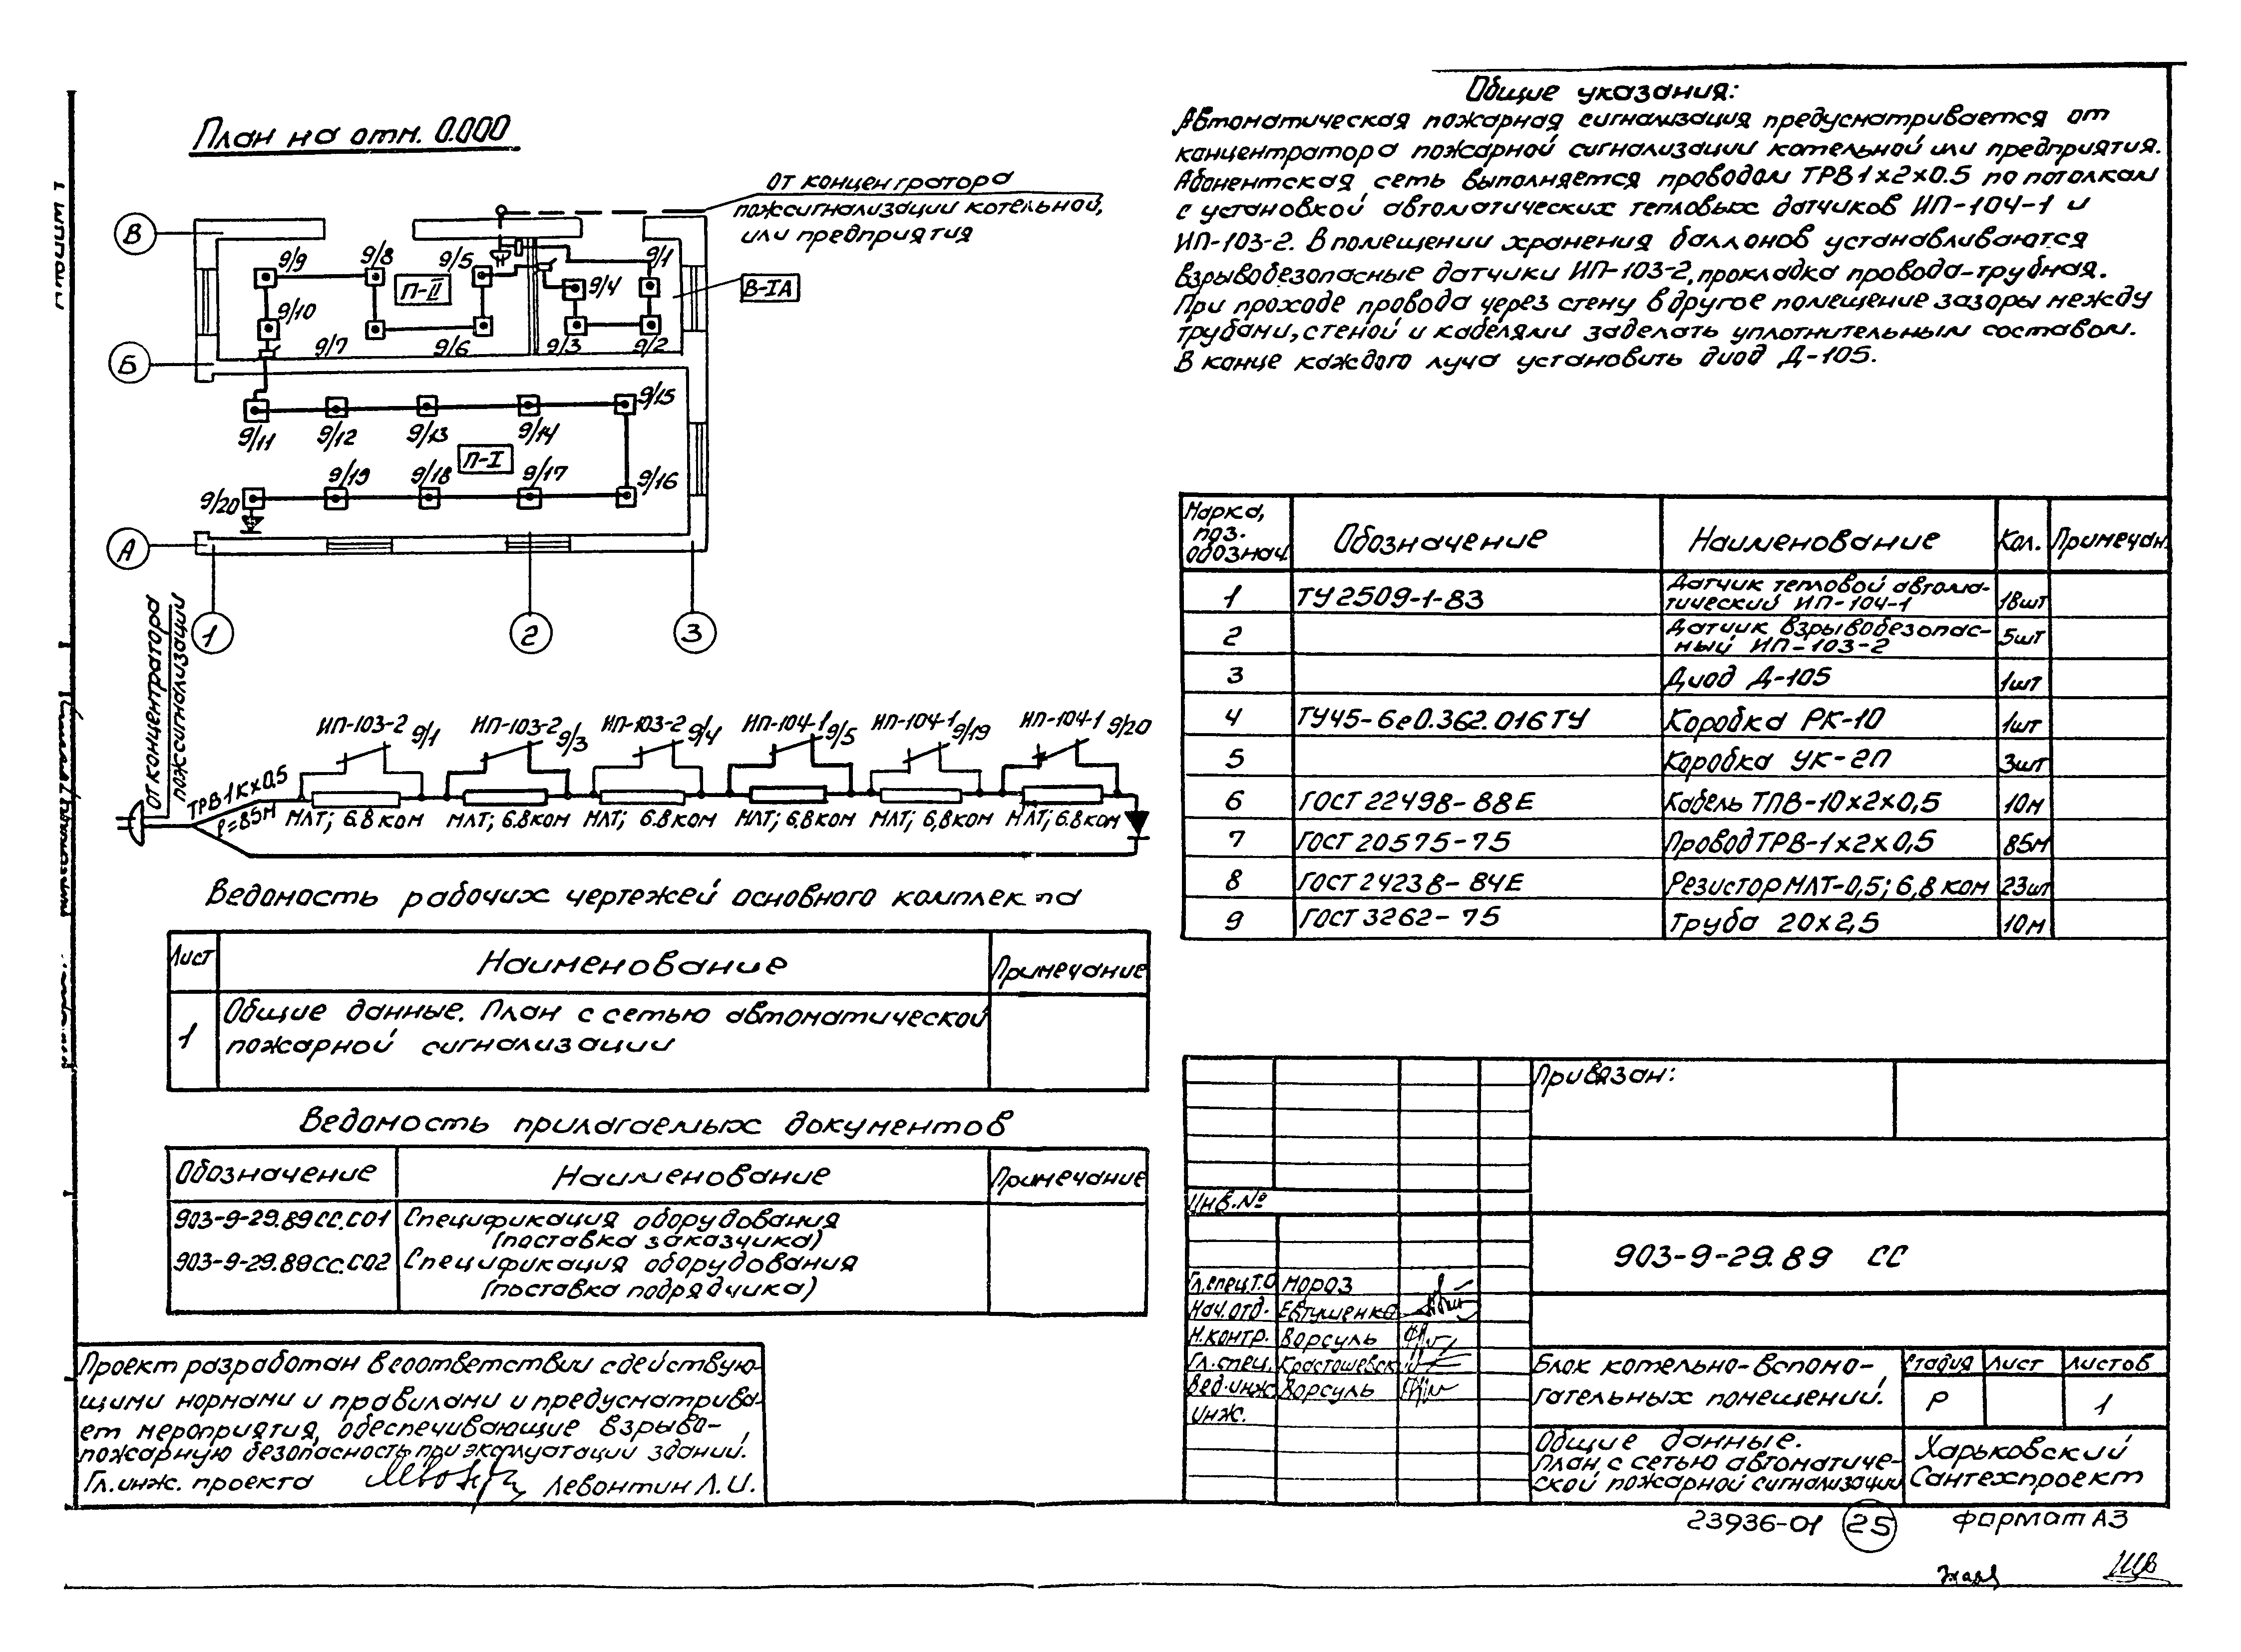 План на отм. 0.000
От концентратора
пожсигнализации котельной,
или предприятия
В
Б
А
1
2
3
9/9
9/8
9/5
9/1
9/4
9/10
9/7
9/6
9/3
9/2
П-II
В-IА
9/11
9/12
9/13
9/14
9/15
П-I
9/20
9/19
9/18
9/17
9/16
От концентратора
пожсигнализации
ТРВ 1К×0.5
ℓ=85м
ИП-103-2 9/1
ИП-103-2 9/3
ИП-103-2 9/4
ИП-104-1 9/5
ИП-104-1 9/19
ИП-104-1 9/20
МЛТ; 6.8 ком
МЛТ; 6.8 ком
МЛТ; 6.8 ком
МЛТ; 6,8 ком
МЛТ; 6,8 ком
МЛТ; 6.8 ком
Ведомость рабочих чертежей основного комплекта
Лист Наименование Примечание
1 Общие данные. План с сетью автоматической
пожарной сигнализации
Ведомость прилагаемых документов
Обозначение Наименование Примечание
903-9-29.89 СС.С01 Спецификация оборудования
(поставка заказчика)
903-9-29.89 СС.С02 Спецификация оборудования
(поставка подрядчика)
Проект разработан в соответствии с действую-
щими нормами и правилами и предусматрива-
ет мероприятия, обеспечивающие взрыво-,
пожарную безопасность при эксплуатации зданий.
Гл. инж. проекта Левонтин Л.И.
Общие указания:
Автоматическая пожарная сигнализация предусматривается от
концентратора пожарной сигнализации котельной или предприятия.
Абонентская сеть выполняется проводом ТРВ 1×2×0.5 по потолкам
с установкой автоматических тепловых датчиков ИП-104-1 и
ИП-103-2. В помещении хранения баллонов устанавливаются
взрывобезопасные датчики ИП-103-2, прокладка провода-трубная.
При проходе провода через стену в другое помещение зазоры между
трубами, стеной и кабелями заделать уплотнительным составом.
В конце каждого луча установить диод Д-105.
Марка,
поз.
обознач. Обозначение Наименование Кол. Примечан.
1 ТУ 2509-1-83 Датчик тепловой автома-
тический ИП-104-1 18шт
2 Датчик взрывобезопас-
ный ИП-103-2 5шт
3 Диод Д-105 1шт
4 ТУ45-6е0.362.016ТУ Коробка РК-10 1шт
5 Коробка УК-2П 3шт
6 ГОСТ 22498-88Е Кабель ТПВ-10×2×0,5 10м
7 ГОСТ 20575-75 Провод ТРВ-1×2×0,5 85м
8 ГОСТ 24238-84Е Резистор МЛТ-0,5; 6,8 ком 23шт
9 ГОСТ 3262-75 Труба 20×2,5 10м
Привязан:
Инв.№
903-9-29.89 СС
Гл.спец.Т.О Мороз
Нач.отд. Евтушенко
Н.контр. Ворсуль
Гл.спец. Красташевск
Вед.инж. Ворсуль
Инж.
Блок котельно-вспомо-
гательных помещений.
Стадия Лист Листов
Р 1
Общие данные.
План с сетью автоматиче-
ской пожарной сигнализации
Харьковский
Сантехпроект
23936-01 25 формат А3